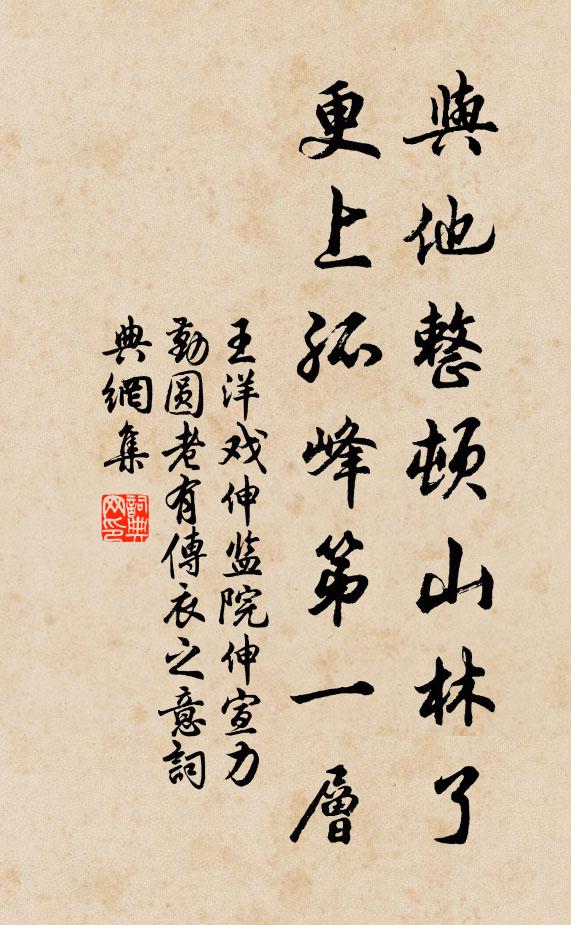 與他整頓山林了
更上孤峰第一層
王洋戏伸监院伸宣力
勤圆老有傳衣之意詞
典網集
詞典网印